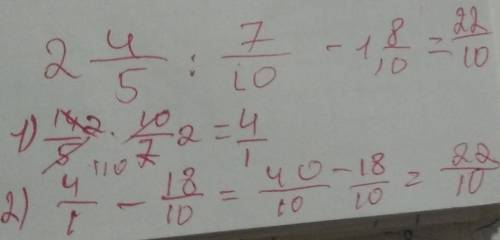 2 4/5 : 7/10 - 1 8/10 = 22/10
1) 14 2/5 · 10/7 2 = 4/1
2) 4/1 - 18/10 = 40/10 - 18/10 = 22/10